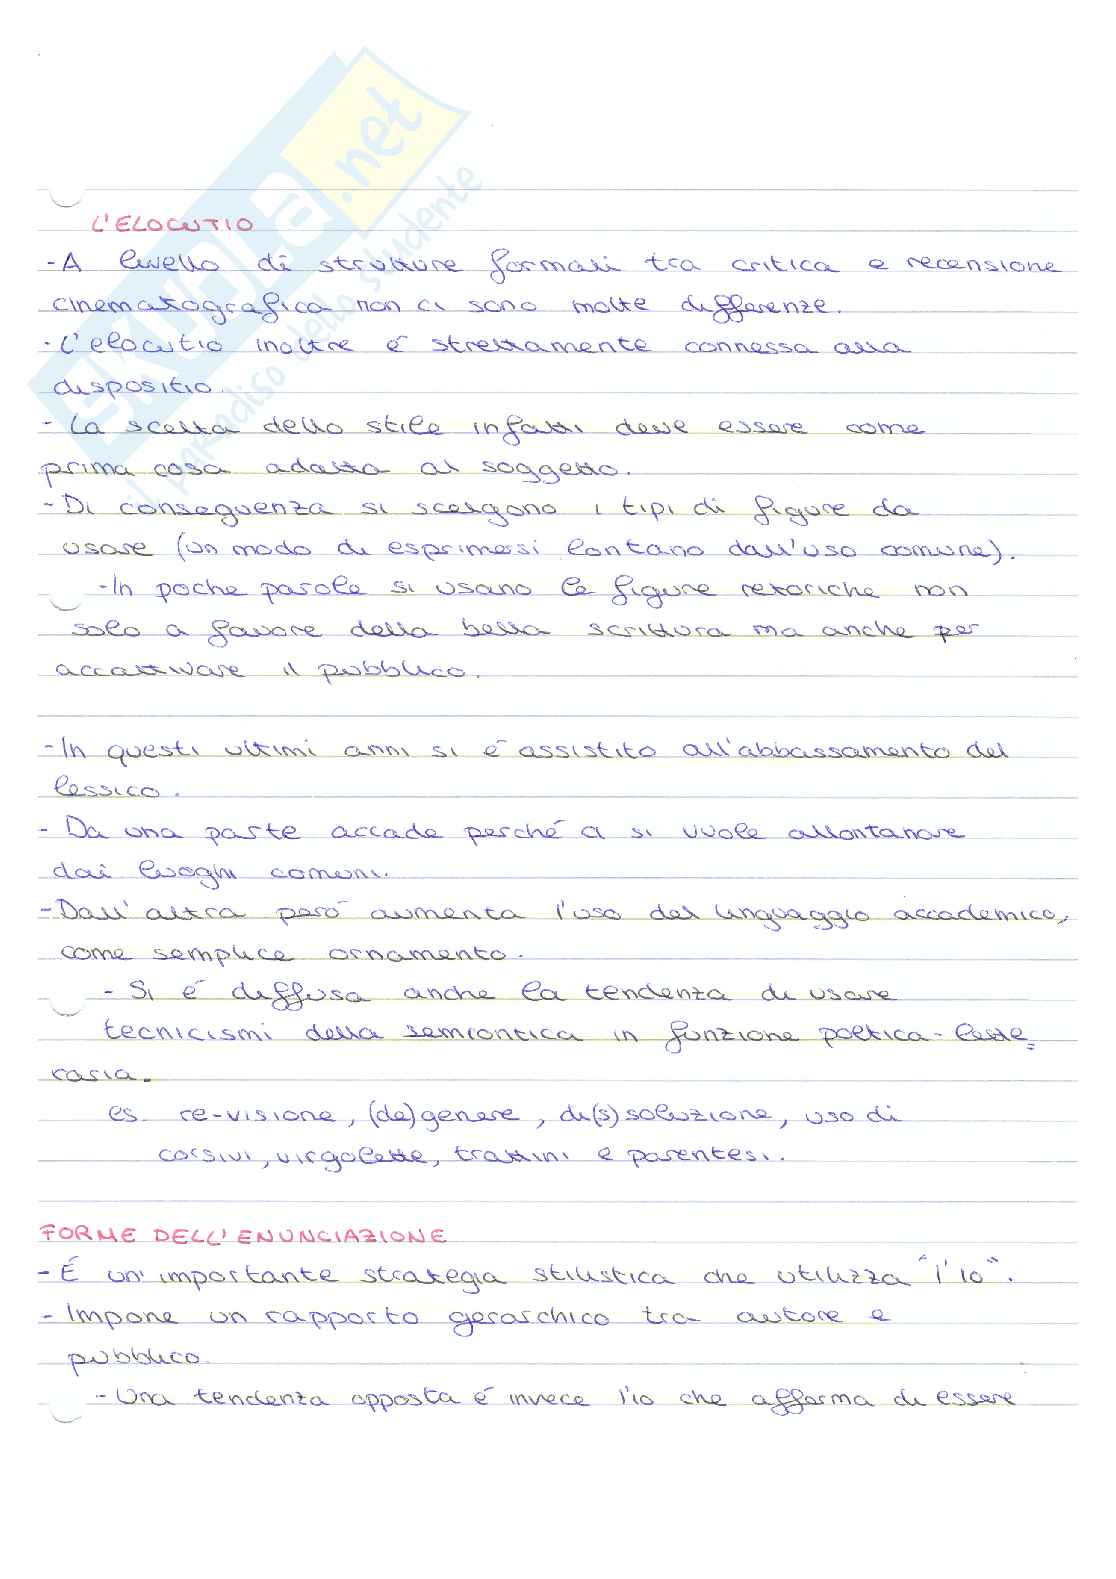 L'ELOCUTIO
- A livello di strutture formali tra critica e recensione
cinematografica non ci sono molte differenze.
- L'elocutio inoltre è strettamente connessa alla
dispositio.
- La scelta dello stile infatti deve essere come
prima cosa adatta al soggetto.
- Di conseguenza si scelgono i tipi di figure da
usare (un modo di esprimersi lontano dall'uso comune).
- In poche parole si usano le figure retoriche non
solo a favore della bella scrittura ma anche per
accattivare il pubblico.
- In questi ultimi anni si è assistito all'abbassamento del
lessico.
- Da una parte accade perché ci si vuole allontanare
dai luoghi comuni.
- Dall'altra però aumenta l'uso del linguaggio accademico,
come semplice ornamento.
- Si è diffusa anche la tendenza di usare
tecnicismi della semiontica in funzione poetica-lette=
raria.
es. re-visione, (de)genere, di(s)soluzione, uso di
corsivi, virgolette, trattini e parentesi.
FORME DELL'ENUNCIAZIONE
- È un'importante strategia stilistica che utilizza "l'io".
- Impone un rapporto gerarchico tra autore e
pubblico.
- Una tendenza opposta è invece l'io che afferma di essere
SKUOLA.net
il paradiso dello studente